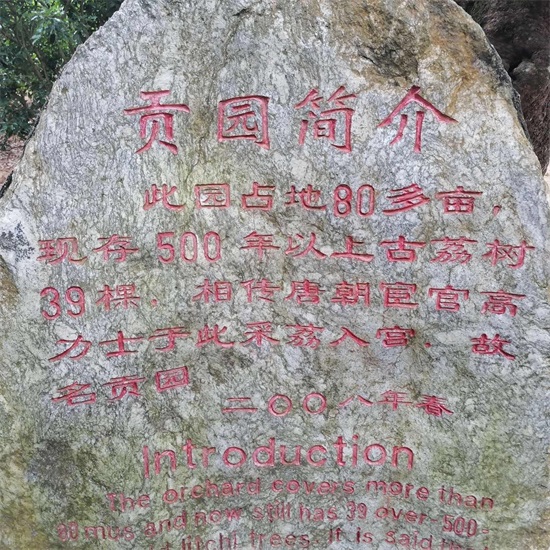 贡园简介
此园占地80多亩，
现存500年以上古荔树
39棵．相传唐朝宦官高
力士于此采荔入宫．故
名贡园
二〇〇八年春
Introduction
The orchard covers more than
80 mus and now still has 39 over-500-
litchi trees. It is said